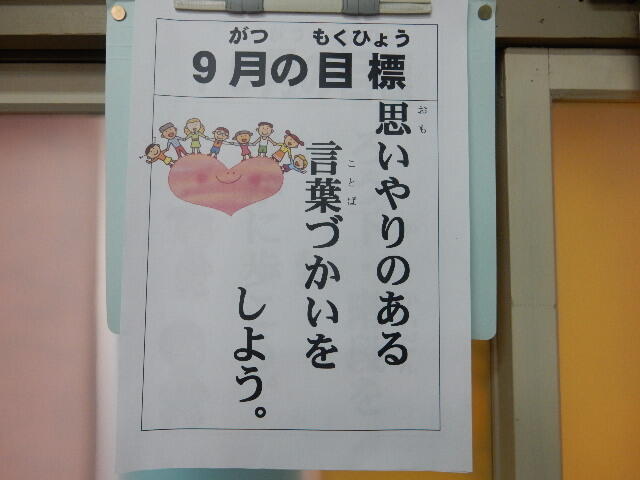 がつ もくひょう
9月の目標
おも
思いやりのある
ことば
言葉づかいを
しよう。